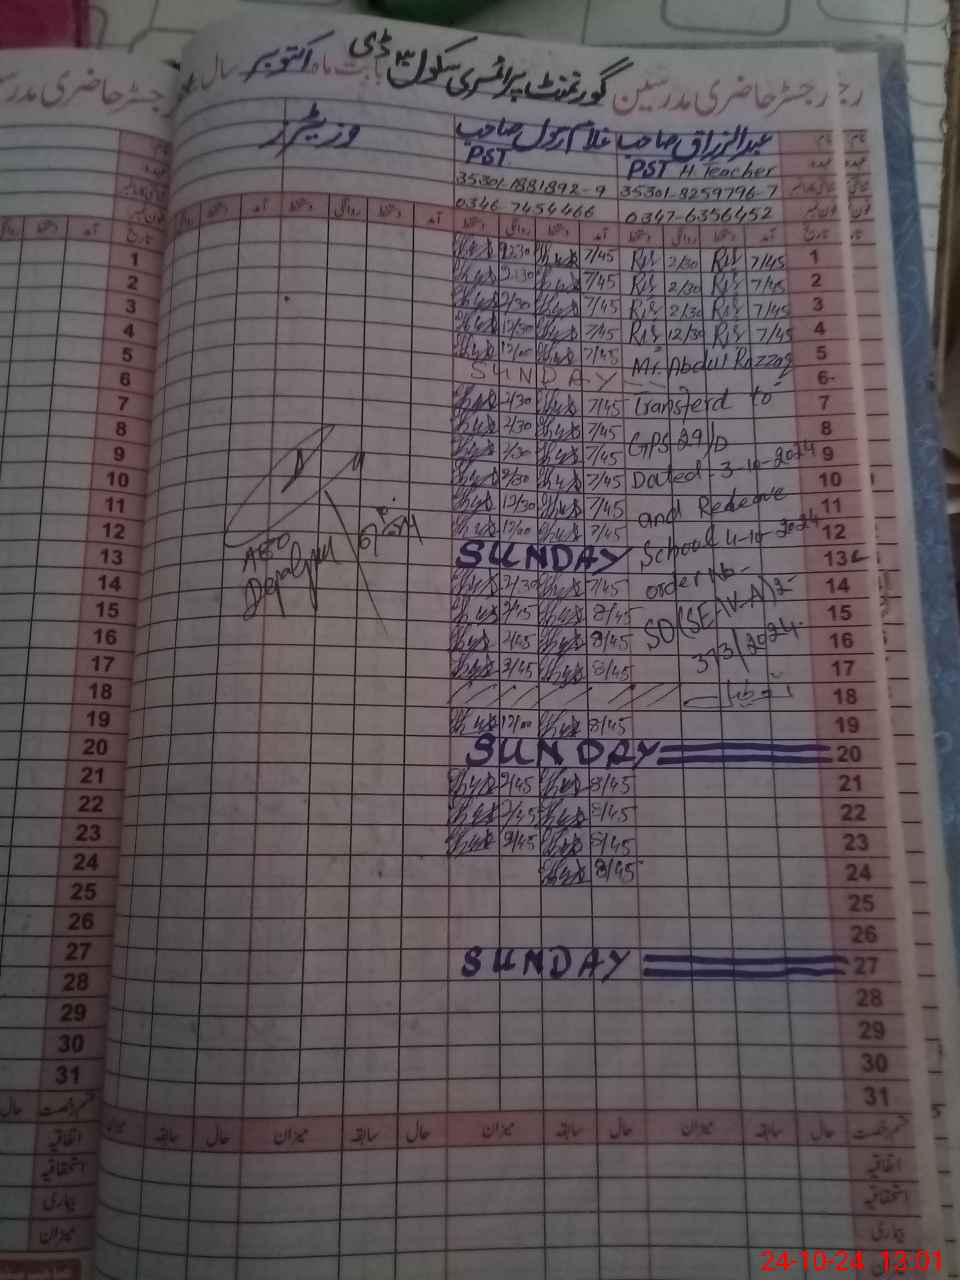 رجسٹر حاضری مدرسین گورنمنٹ پرائمری سکول ۳ ڈی بابت ماہ اکتوبر سال
نام عبدالرزاق صاحب غلام رسول صاحب وزیٹرز
عہدہ PST H. Teacher PST
35301-8259796-7 35301-1881892-9
فون نمبر 0347-6356452 0346-7454466
تاریخ آمد دستخط روانگی دستخط آمد دستخط روانگی دستخط آمد دستخط روانگی دستخط آمد دستخط روانگی
1 7/45 2/30 7/45 2:30
2 7/45 2/30 7/45 2:30
3 7/45 2/30 7/45 2/30
4 7/45 12/30 7/45 12/30
5 Mr. Abdul Razzaq 7/45 12/00
6 SUNDAY
7 transferd to 7/45 2/30
8 7/45 2/30
9 GPS 29/D 7/45 2/30
10 Dated. 3-10-2024 7/45 2/30
11 and Releave 7/45 12/30
12 School 4-10-2024 7/45 12/00
13 SUNDAY
14 order No- 7/45 2/30
15 SO(SE-IV-A)2- 8/45 2/45
16 373/2024. 8/45 2/45
17 8/45 2/45
18 تعطیل
19 8/45 12/00
20 SUNDAY
21 8/45 2/45
22 8/45 2/45
23 8/45 2/45
24 8/45
25
26
27 SUNDAY
28
29
30
31
AEO
Depalpur
قسم رخصت حال سابقہ میزان حال سابقہ میزان حال سابقہ میزان حال سابقہ میزان
اتفاقیہ
استحقاقیہ
بیماری
میزان
24-10-24 13:01